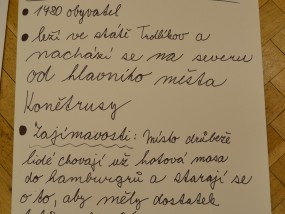 1780 obyvatel
leží ve státě Trdlíkov a
nachází se na severu
od hlavního města
Konětrusy
Zajímavosti: místo drůbeže
lidé chovají už hotová masa
do hamburgrů a starají se
o to, aby měly dostatek